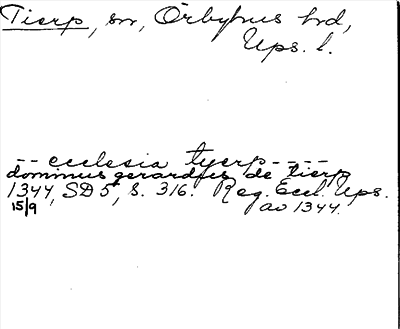 Tierp, sn, Örbyhus hd,
Ups. l.
-- ecclesia tyerp ----
dominus gerardus de tierp
1344, SD 5, s. 316. Reg. Eccl. Ups.
15/9 av 1344.